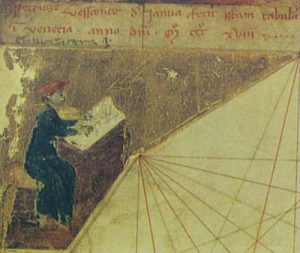 petrus vesconte d' Janua fecit istam tabula
i venecia · anno dni · M° · CCC · XVIII